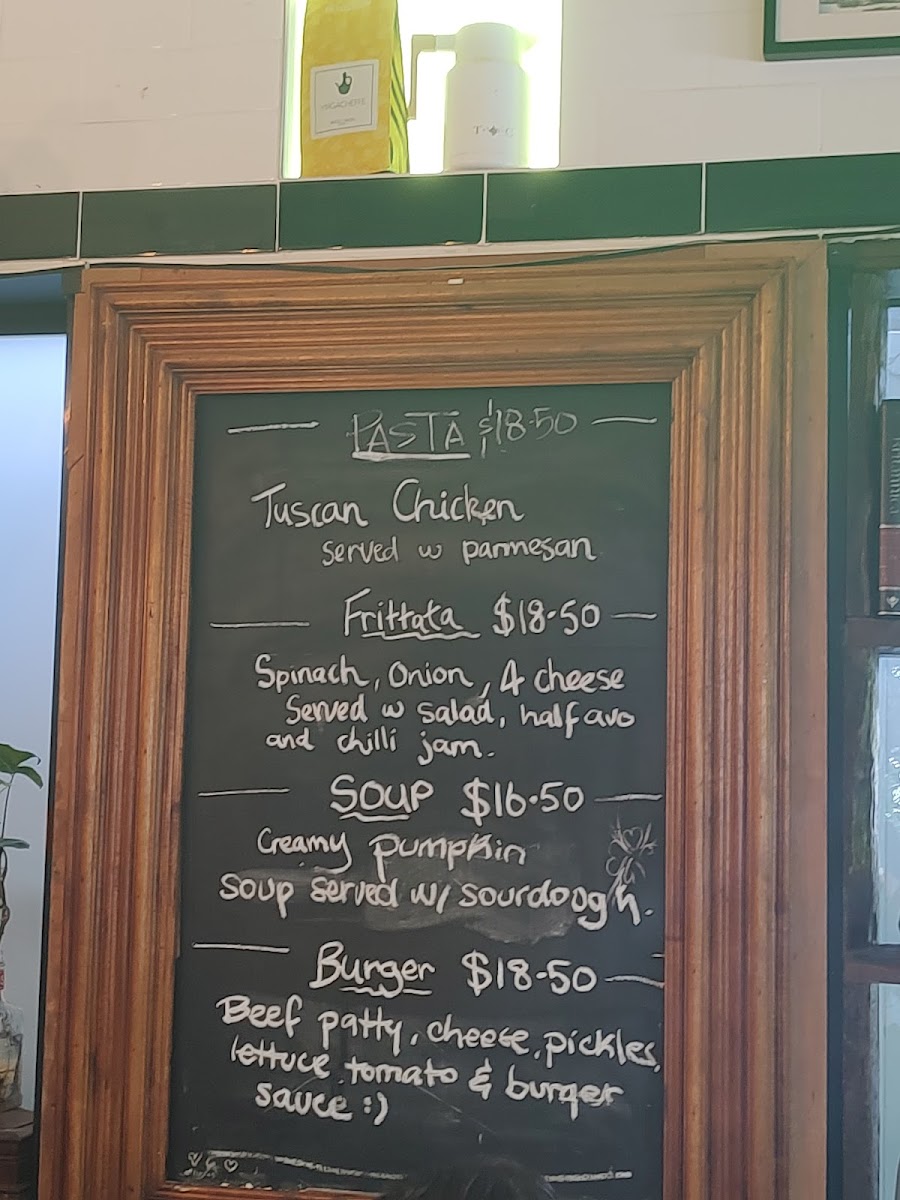 YIRGACHEFFE
PASTA $18.50
Tuscan Chicken
served w parmesan
Frittata $18.50
Spinach, Onion, 4 cheese
Served w salad, half avo
and chilli jam.
SOUP $16.50
Creamy pumpkin
soup served w/ sourdough.
Burger $18.50
Beef patty, cheese, pickles,
lettuce tomato & burger
sauce :)